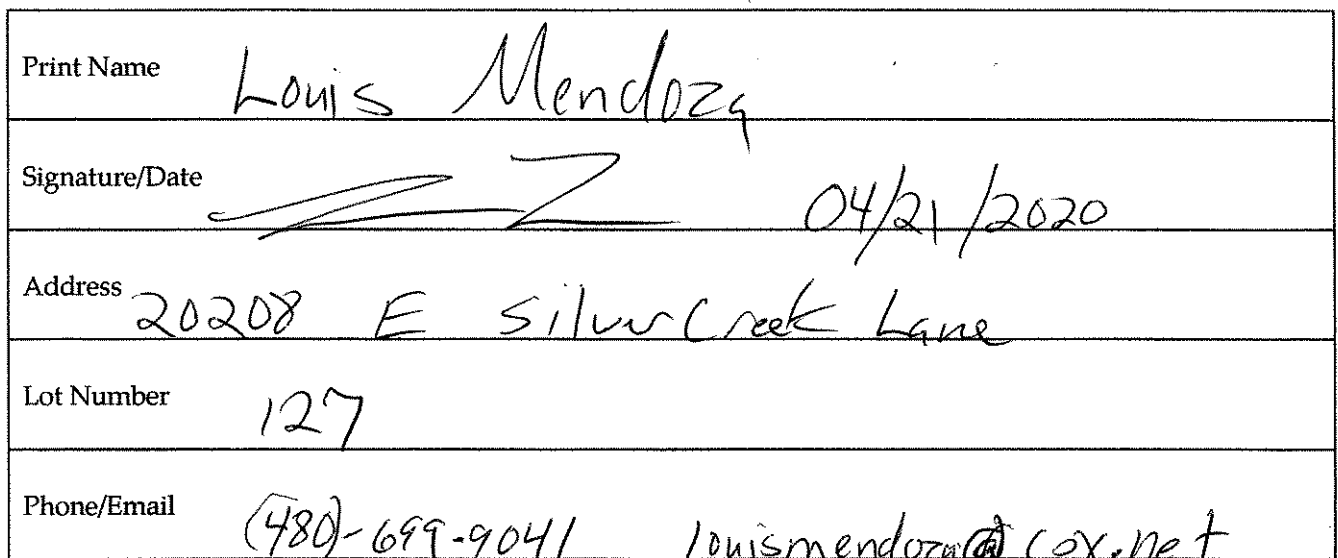 Print Name Louis Mendoza
Signature/Date 04/21/2020
Address 20208 E SilverCreek Lane
Lot Number 127
Phone/Email (480)-699-9041 louismendoza@cox.net